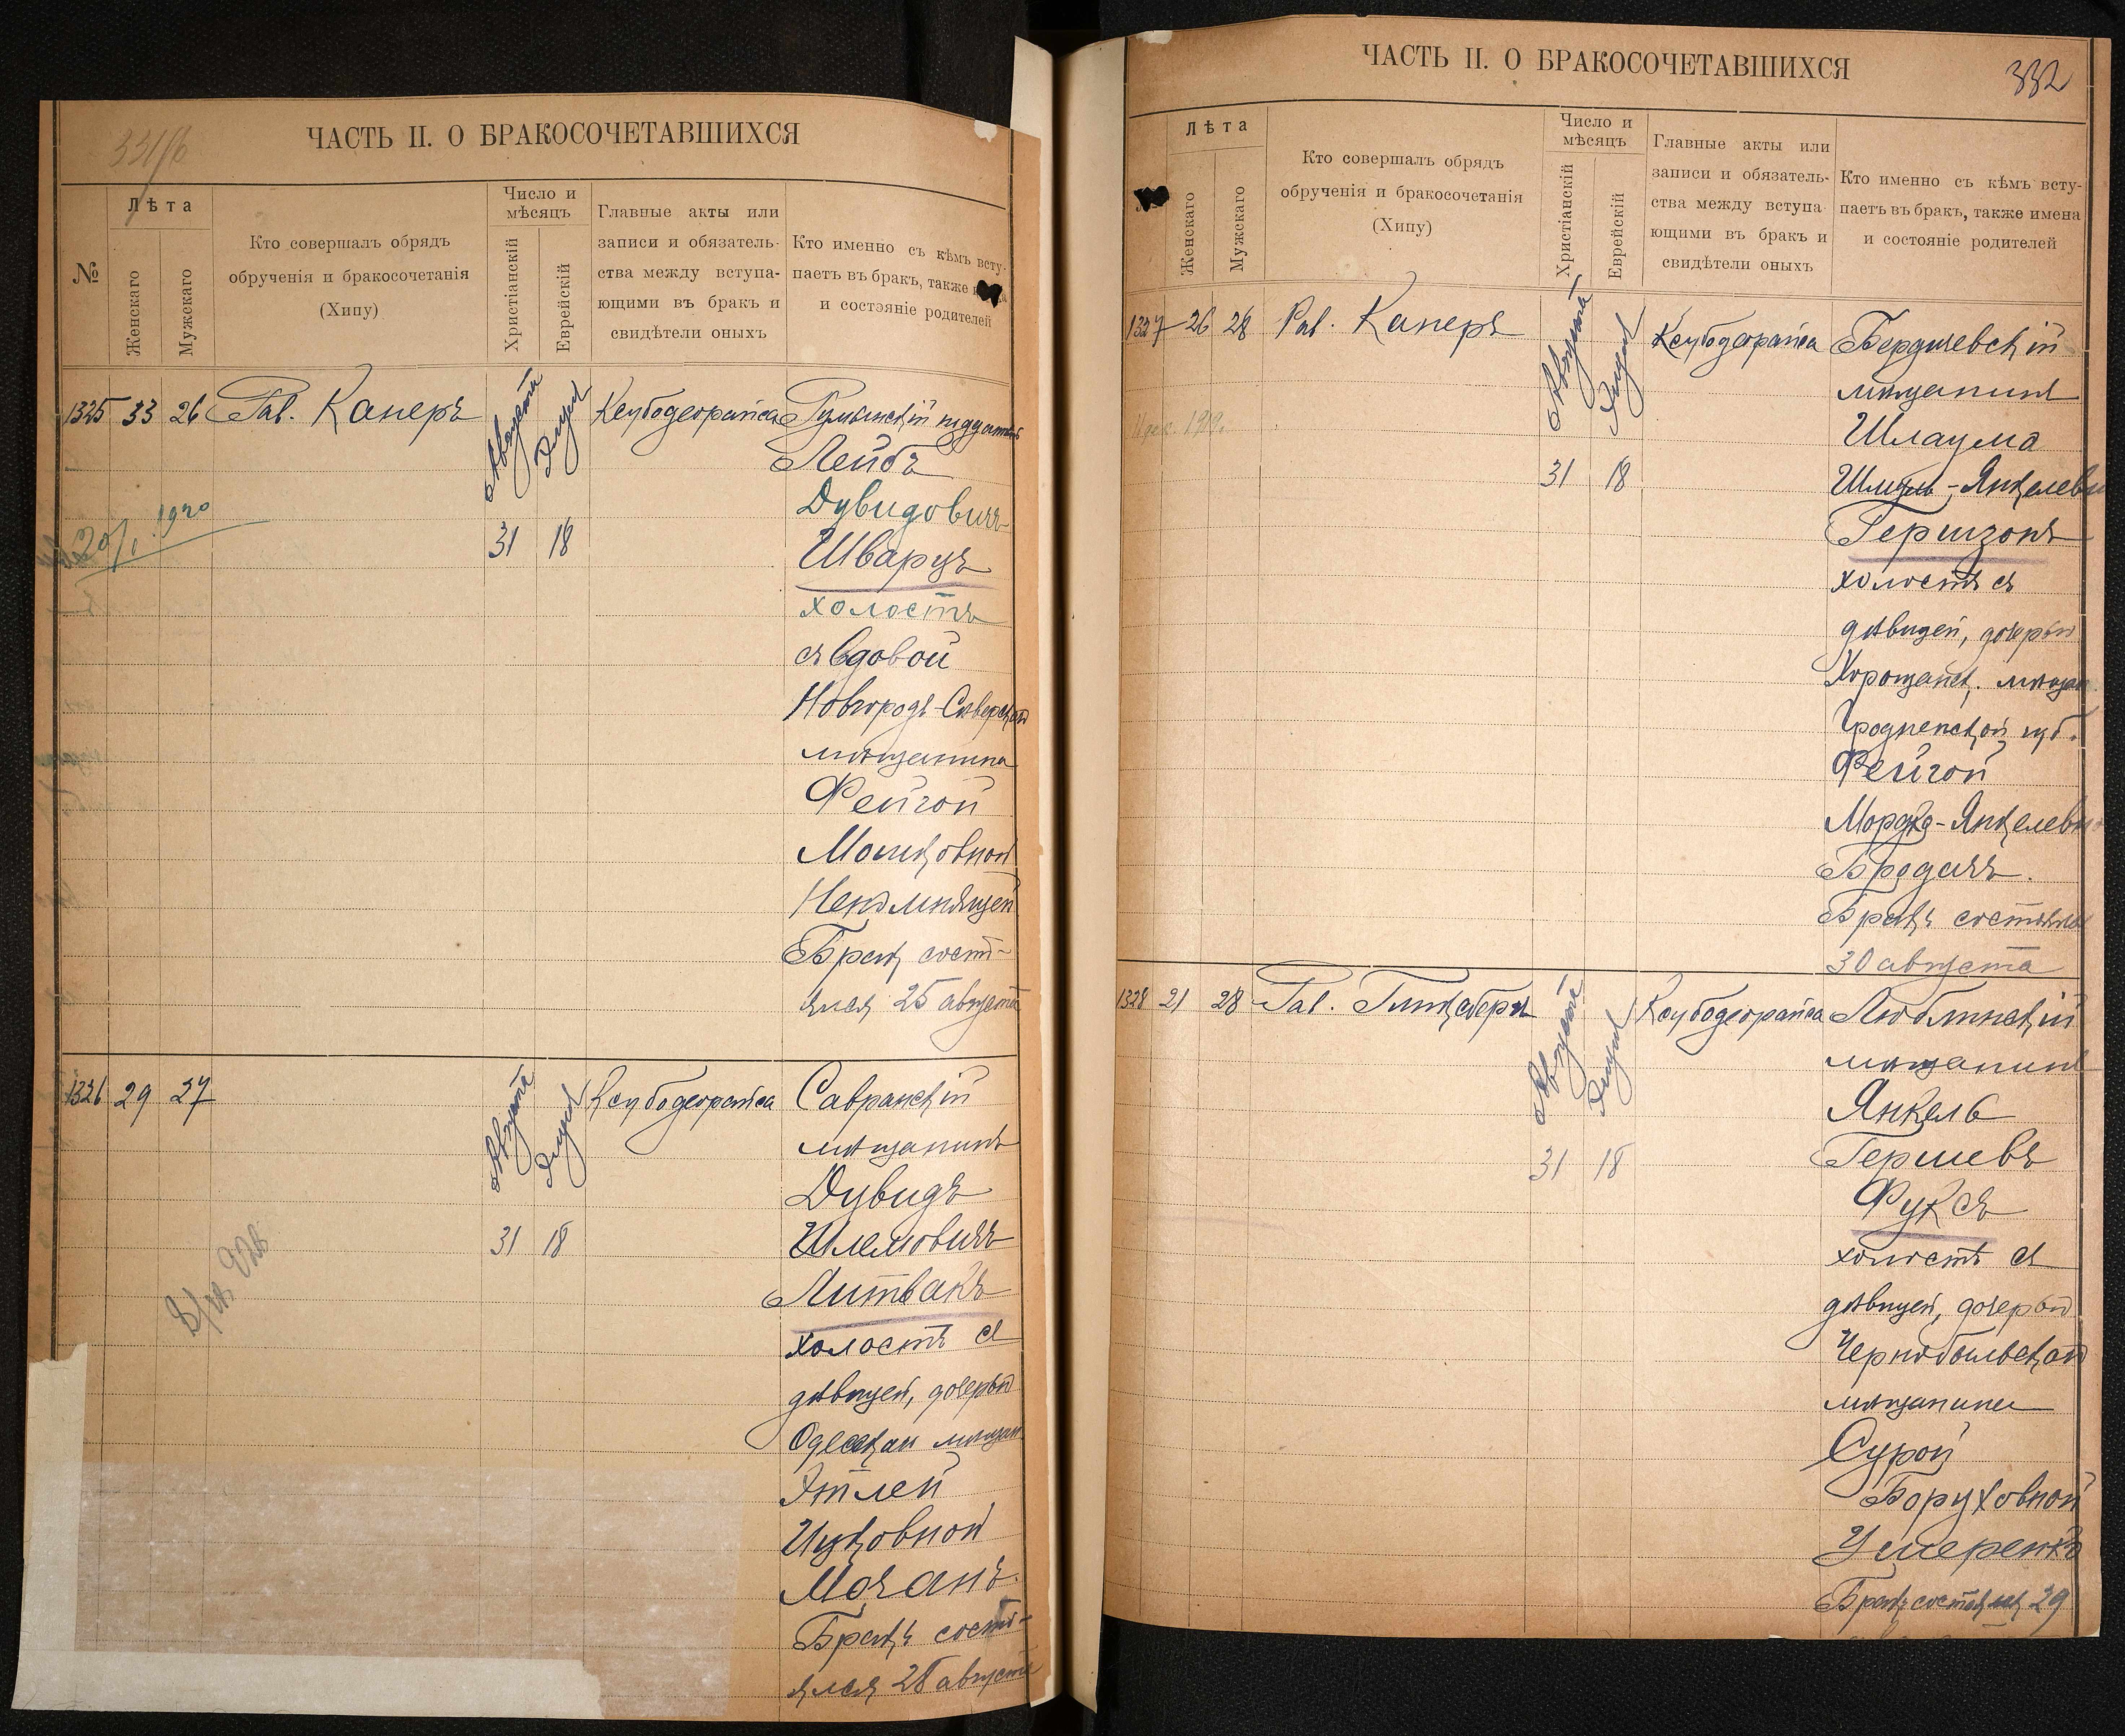 331/б
ЧАСТЬ II. О БРАКОСОЧЕТАВШИХСЯ
№
Лѣта
Женскаго
Мужскаго
Кто совершалъ обрядъ
обрученія и бракосочетанія
(Хипу)
Число и
мѣсяцъ
Христіанскій
Еврейскій
Главные акты или
записи и обязатель-
ства между вступа-
ющими въ бракъ и
свидѣтели оныхъ
Кто именно съ кѣмъ всту-
паетъ въ бракъ, также
и состояніе родителей
1325 33 26 Рав. Канеръ
Августа
Элуля
31 18
Ксубодеорайса
Румынскій подданный
Лейбъ
Дувидовичъ
Шварцъ
холостъ
съ вдовой
Новгородъ-Сѣверской
мѣщанина
Фейгой
Мошковной
Непомнящей
Бракъ состо-
ялся 25 августа
1920
1326 29 27
Августа
Элуля
31 18
Ксубодеорайса
Савранскій
мѣщанинъ
Дувидъ
Шлемовичъ
Литвакъ
холостъ съ
дѣвицей, дочерью
Одесскаи мѣщан
Этлей
Ицковной
Мочанъ.
Бракъ состо-
ялся 28 августа
332
ЧАСТЬ II. О БРАКОСОЧЕТАВШИХСЯ
Лѣта
Женскаго
Мужскаго
Кто совершалъ обрядъ
обрученія и бракосочетанія
(Хипу)
Число и
мѣсяцъ
Христіанскій
Еврейскій
Главные акты или
записи и обязатель-
ства между вступа
ющими въ бракъ и
свидѣтели оныхъ
Кто именно съ кѣмъ всту-
паетъ въ бракъ, также имена
и состояніе родителей
1327 26 28 Рав. Канеръ
Августа
Элуля
31 18
Ксубодеорайса
Бердичевскій
мѣщанинъ
Шлаума
Шмуль-Янкелевъ
Гершзонъ
холостъ съ
дѣвицей, дочерью
Хорощанск. мѣщан.
Гродненской губ.
Фейгой
Мордко-Янкелевн
Бродачъ.
Бракъ состоялся
30 августа
1919.
1328 21 28 Рав. Гинзбергъ
Августа
Элуля
31 18
Ксубодеорайса
Люблинскій
мѣщанинъ
Янкель
Гершевъ
Фуксъ
холостъ съ
дѣвицей, дочерью
Чернобыльской
мѣщанина
Сурой
Боруховной
Умеренко
Бракъ состоялся 29